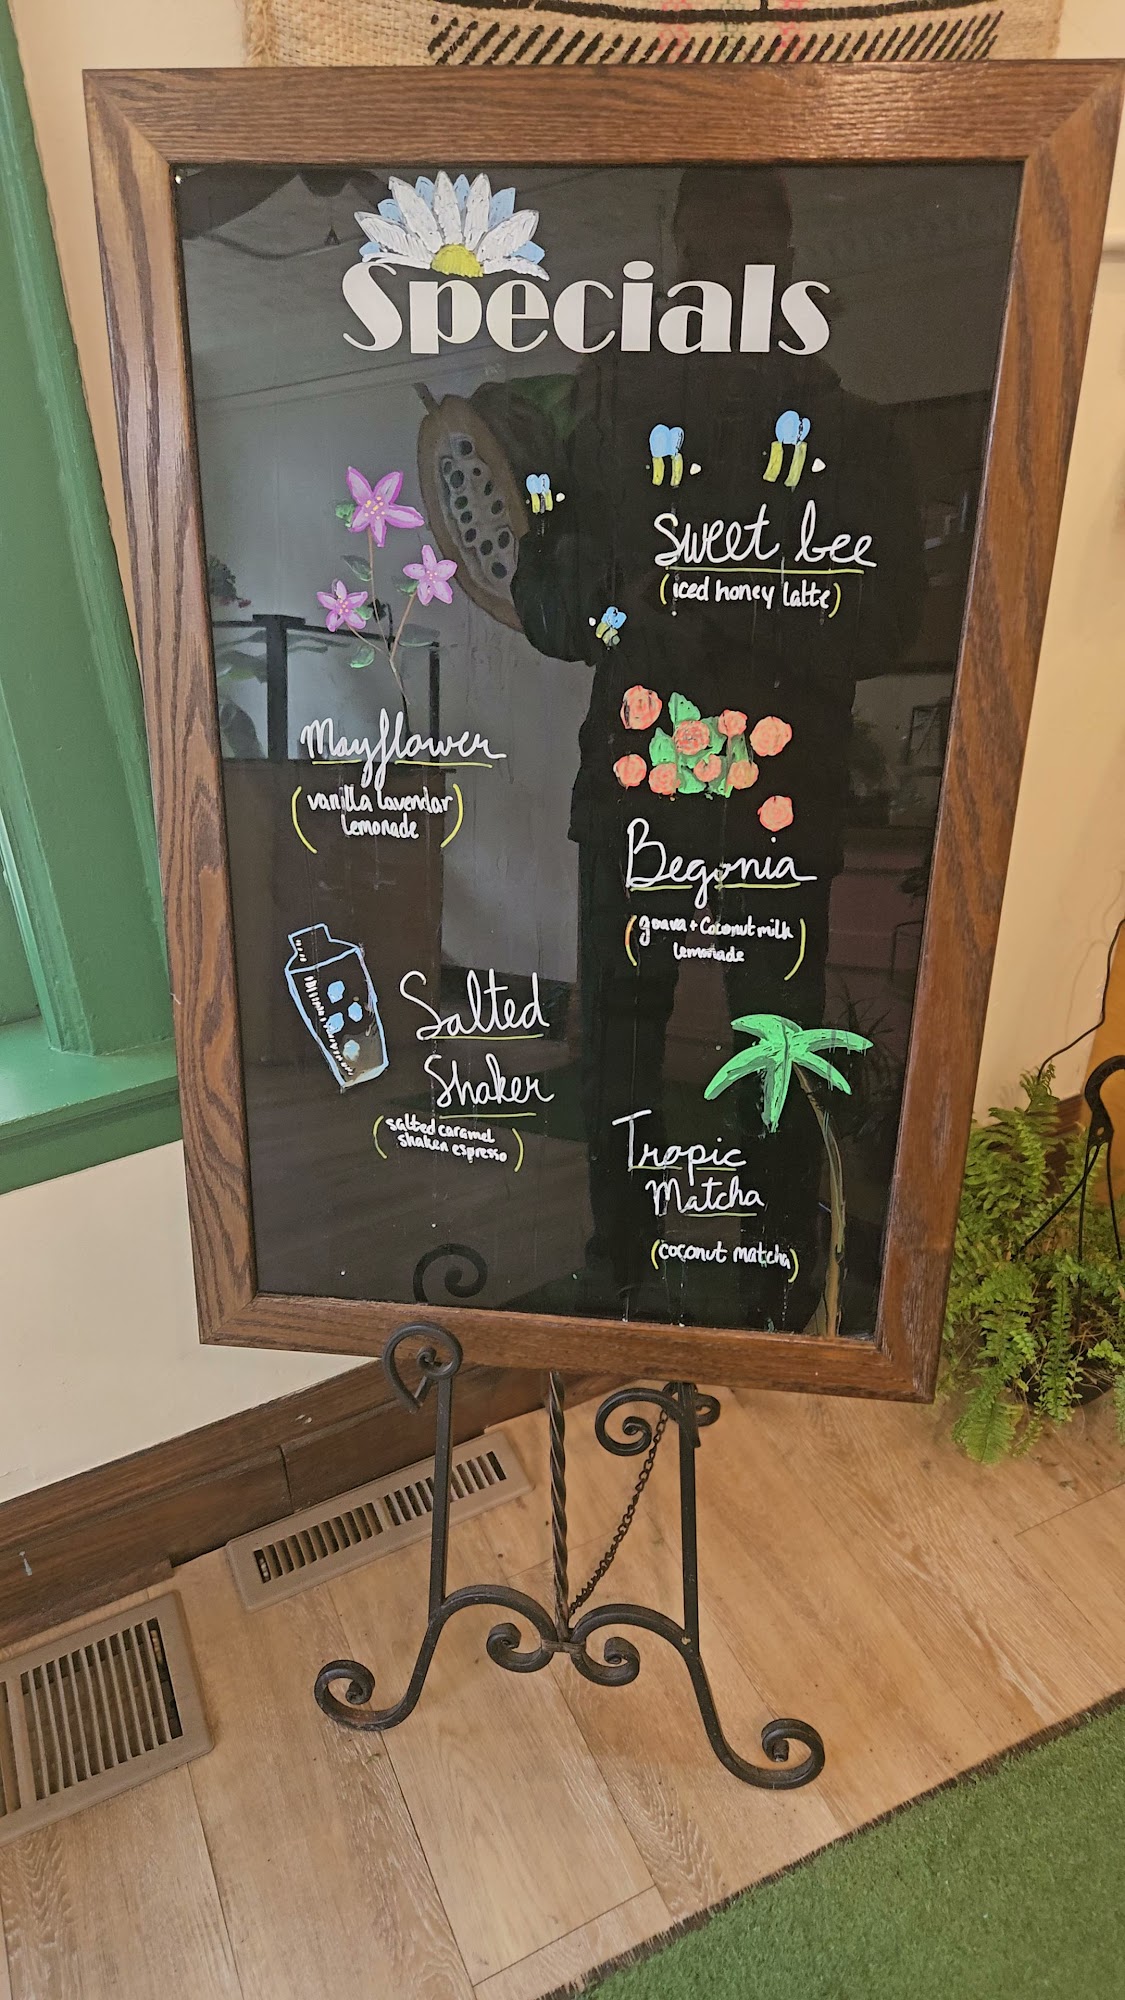 Specials
Sweet bee
(iced honey latte)
Mayflower
(vanilla lavendar
lemonade)
Begonia
(guava + coconut milk
lemonade)
Salted
Shaker
(salted caramel
shaken espresso)
Tropic
Matcha
(coconut matcha)